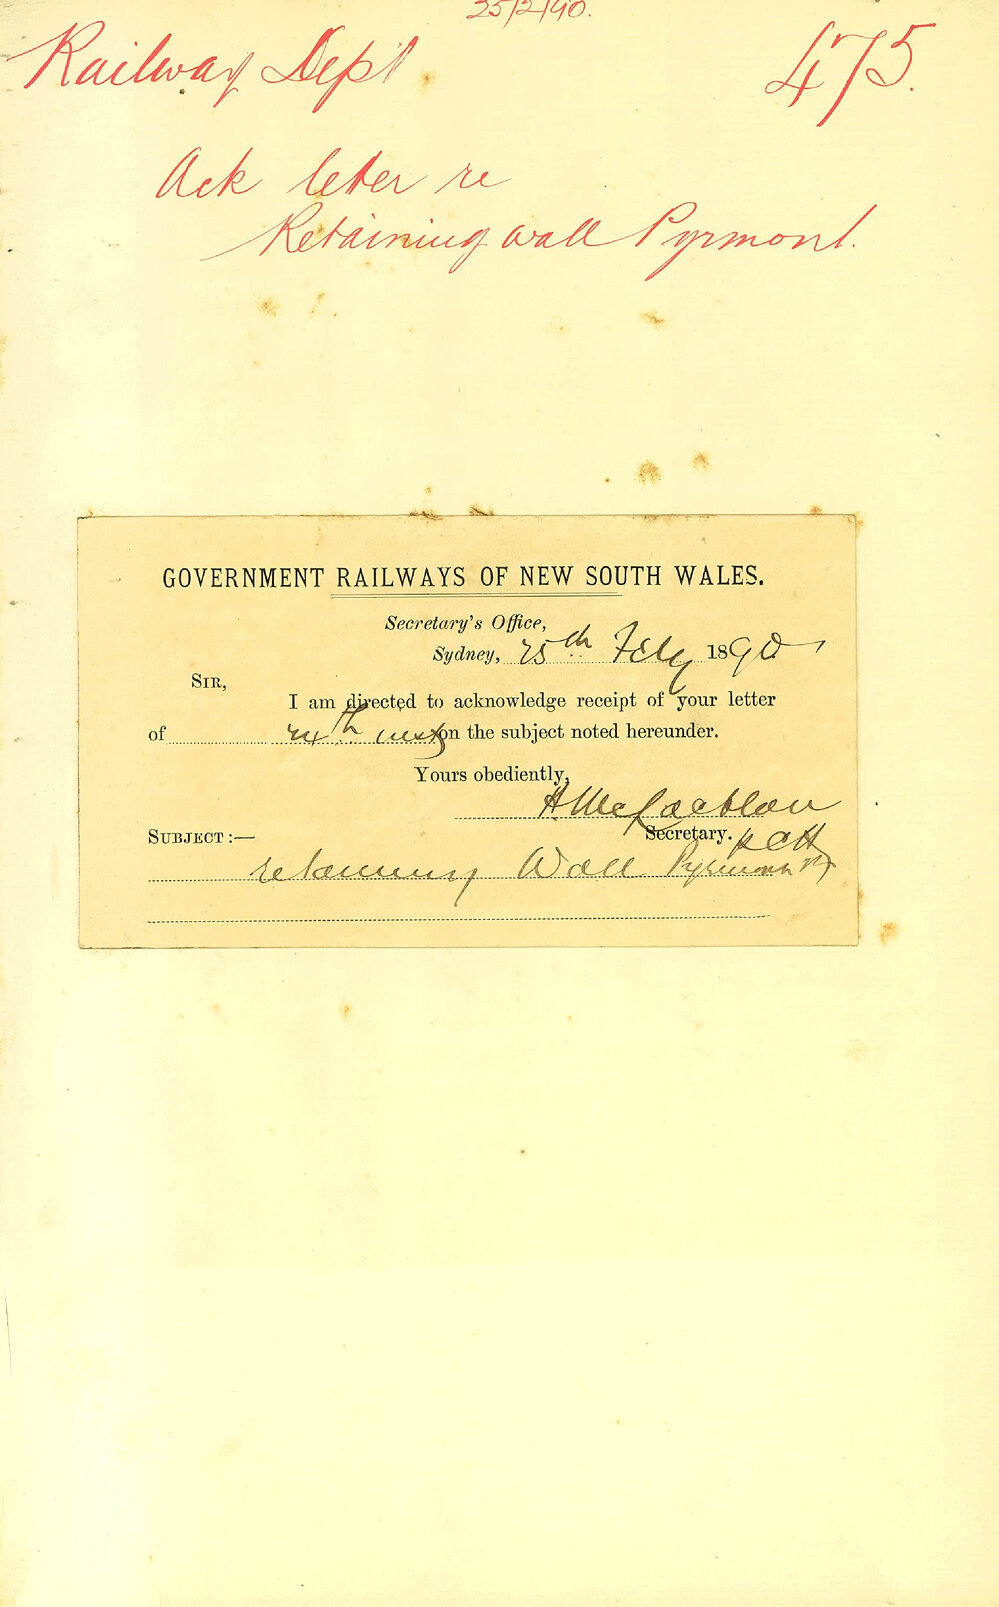 25/2/90.
Railway Dept 475.
Ack letter re
Retaining wall Pyrmont.
GOVERNMENT RAILWAYS OF NEW SOUTH WALES.
Secretary's Office,
Sydney, 25th Feby 1890
SIR,
I am directed to acknowledge receipt of your letter
of 24th inst on the subject noted hereunder.
Yours obediently,
H McLachlan
Secretary.
SUBJECT :—
retaining Wall Pyrmont